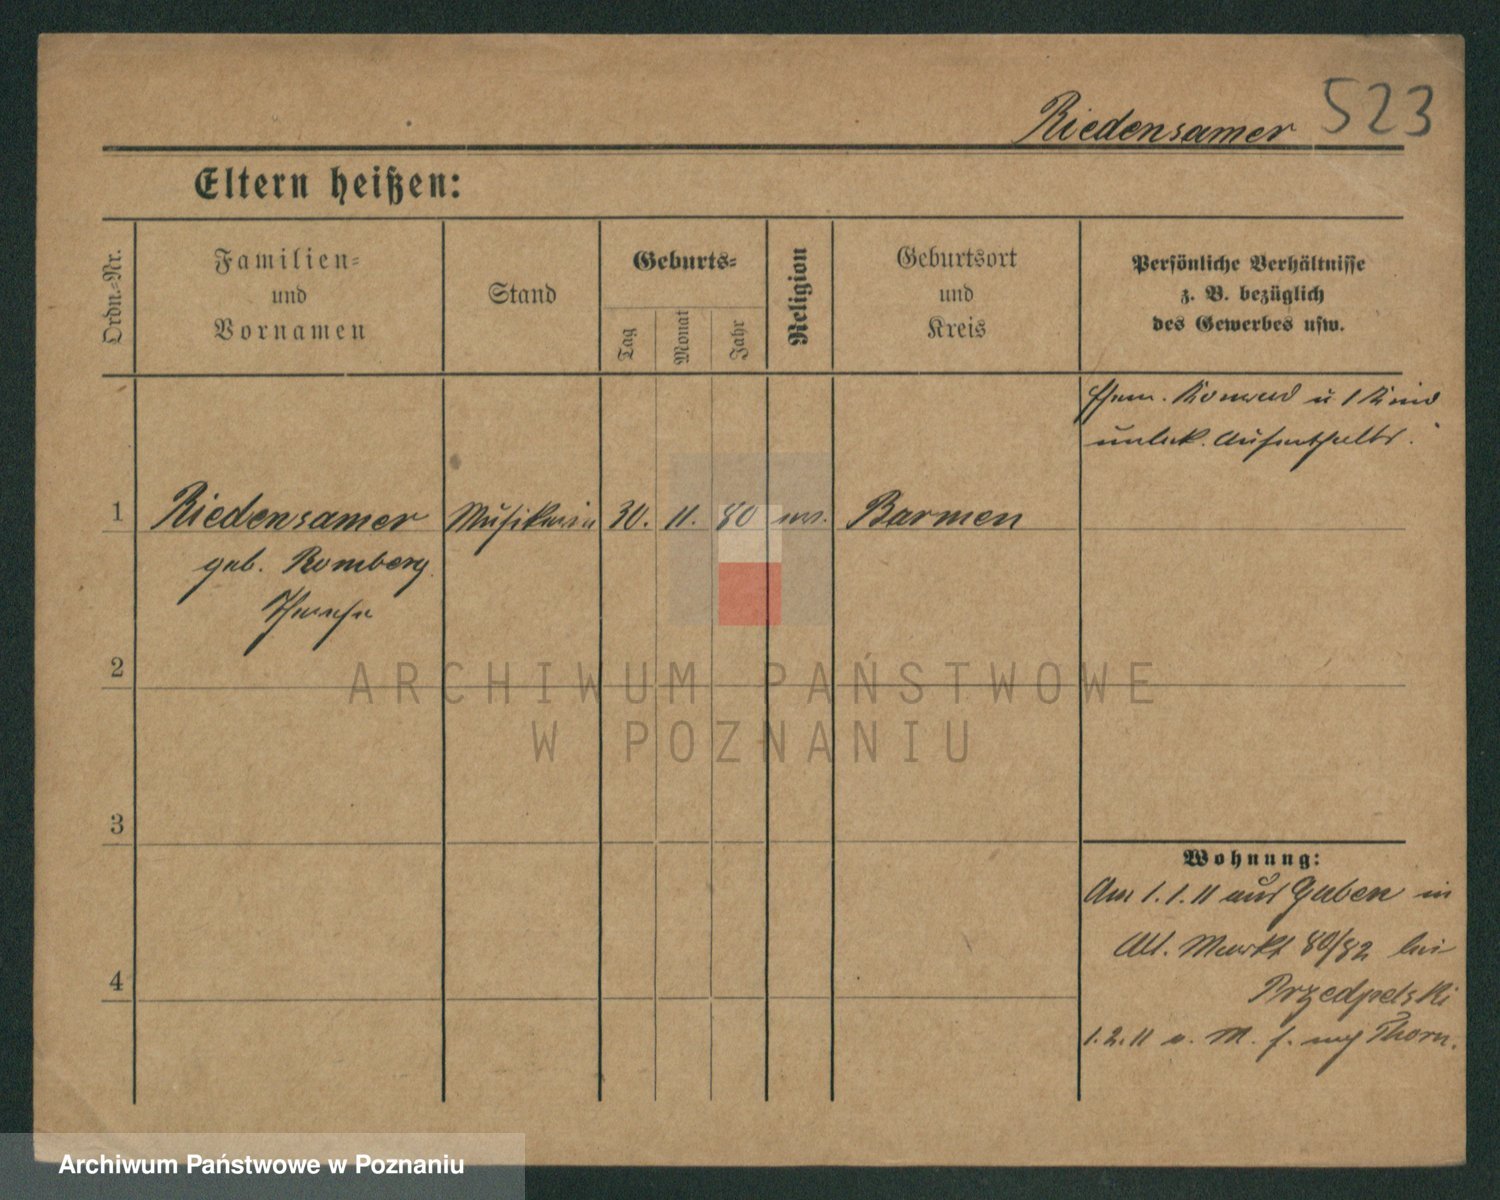 Riedensamer 523
Eltern heißen:
Ordn.-Nr.
Familien-
und
Vornamen
Stand
Geburts-
Tag
Monat
Jahr
Religion
Geburtsort
und
Kreis
Persönliche Verhältnisse
z. B. bezüglich
des Gewerbes usw.
Ehem. Konrad u 1 Kind
unbek. Aufenthalts.
1 Riedensamer Musikerin 30. 11. 80 ev. Barmen
geb. Romberg
Therese
2
ARCHIWUM PAŃSTWOWE
W POZNANIU
3
4
Wohnung:
Am 1.1.11 aus Guben in
Alt. Markt 80/82 bei
Przedpelski
1.2.11 n. M. f. nach Thorn.
Archiwum Państwowe w Poznaniu